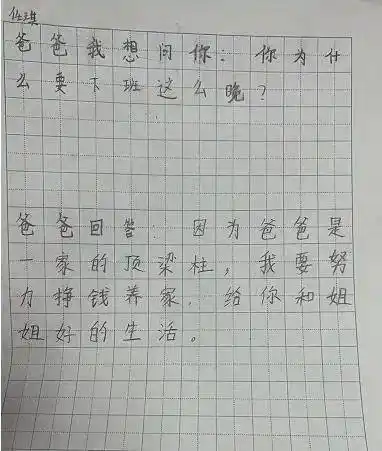 佐琪
爸爸我想问你：你为什
么要下班这么晚？
爸爸回答：因为爸爸是
一家的顶梁柱，我要努
力挣钱养家．给你和姐
姐好的生活。